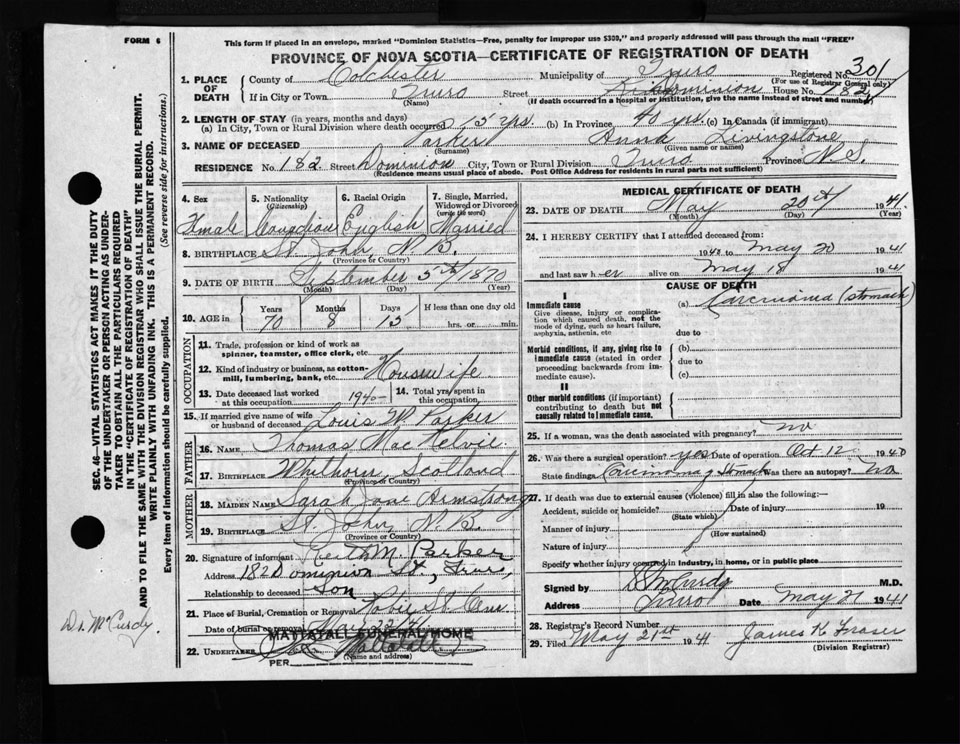 FORM 6
This form if placed in an envelope, marked "Dominion Statistics—Free, penalty for improper use $300," and properly addressed will pass through the mail "FREE"
PROVINCE OF NOVA SCOTIA—CERTIFICATE OF REGISTRATION OF DEATH
1. PLACE OF DEATH County of Colchester Municipality of Truro Registered No. 301
(For use of Registrar General only)
If in City or Town Truro Street Dominion House No. 182
(Name) (If death occurred in a hospital or institution, give the name instead of street and number)
2. LENGTH OF STAY (in years, months and days)
(a) In City, Town or Rural Division where death occurred 15 yrs. (b) In Province 40 yrs. (c) In Canada (if immigrant)
3. NAME OF DECEASED Parker Anna Livingstone
(Surname) (Given name or names)
RESIDENCE No. 182 Street Dominion City, Town or Rural Division Truro Province N.S.
(Residence means usual place of abode. Post Office Address for residents in rural parts not sufficient)
4. Sex 5. Nationality (Citizenship) 6. Racial Origin 7. Single, Married, Widowed or Divorced (write the word)
Female Canadian English Married
8. BIRTHPLACE St. John, N.B.
(Province or Country)
9. DATE OF BIRTH September 5th/1870
(Month) (Day) (Year)
10. AGE in Years Months Days If less than one day old
70 8 15 hrs. or min.
OCCUPATION
11. Trade, profession or kind of work as spinner, teamster, office clerk, etc.
12. Kind of industry or business, as cotton-mill, lumbering, bank, etc. Housewife
13. Date deceased last worked at this occupation 1940 14. Total yrs. spent in this occupation
15. If married give name of wife or husband of deceased Louis W Parker
FATHER
16. NAME Thomas MacKelvie
17. BIRTHPLACE Whithorn, Scotland
(Province or Country)
MOTHER
18. MAIDEN NAME Sarah Jane Armstrong
19. BIRTHPLACE St. John, N.B.
(Province or Country)
20. Signature of informant Keith M. Parker
Address 182 Dominion St., Truro
Relationship to deceased Son
21. Place of Burial, Cremation or Removal Robie St. Cem.
Date of burial or removal May 22/41
MATTATALL FUNERAL HOME
22. UNDERTAKER Mattatall
(Name and address)
PER
MEDICAL CERTIFICATE OF DEATH
23. DATE OF DEATH May 20th 1941
(Month) (Day) (Year)
24. I HEREBY CERTIFY that I attended deceased from:
1940 to May 20 1941
and last saw h er alive on May 18 1941
CAUSE OF DEATH
I
Immediate cause (a) Carcinoma (stomach)
Give disease, injury or complication which caused death, not the mode of dying, such as heart failure, asphyxia, asthenia, etc
due to
Morbid conditions, if any, giving rise to immediate cause (stated in order proceeding backwards from immediate cause). (b)
due to
(c)
II
Other morbid conditions (if important) contributing to death but not causally related to immediate cause.
25. If a woman, was the death associated with pregnancy? no
26. Was there a surgical operation? yes Date of operation Oct 12 1940
State findings Carcinoma of Stomach Was there an autopsy? No
27. If death was due to external causes (violence) fill in also the following:—
Accident, suicide or homicide? Date of injury 19
(State which)
Manner of injury
(How sustained)
Nature of injury
Specify whether injury occurred in industry, in home, or in public place
Signed by McCurdy M.D.
Address Truro Date May 21 1941
28. Registrar's Record Number
29. Filed May 21st 1941 James K Fraser
(Division Registrar)
SEC. 46—VITAL STATISTICS ACT MAKES IT THE DUTY
OF THE UNDERTAKER OR PERSON ACTING AS UNDER-
TAKER TO OBTAIN ALL THE PARTICULARS REQUIRED
IN THE "CERTIFICATE OF REGISTRATION OF DEATH"
AND TO FILE THE SAME WITH THE DIVISION REGISTRAR WHO SHALL ISSUE THE BURIAL PERMIT.
WRITE PLAINLY WITH UNFADING INK. THIS IS A PERMANENT RECORD.
Every item of information should be carefully supplied. (See reverse side for instructions.)
Dr. McCurdy